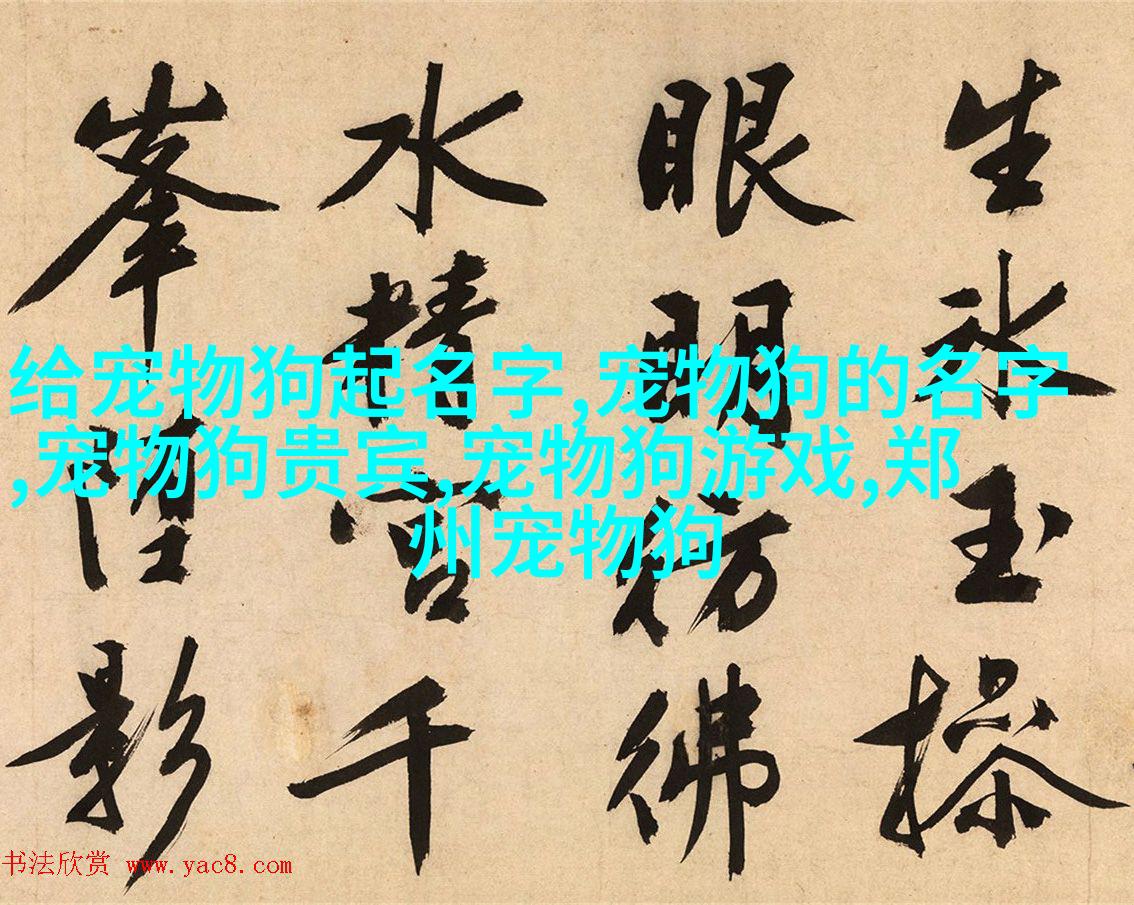 给宠物狗起名字,宠物狗的名字
,宠物狗贵宾,宠物狗游戏,郑
州宠物狗
生氷玉操
眼明彷彿
水精宮千
峯墮影
书法欣赏 www.yac8.com